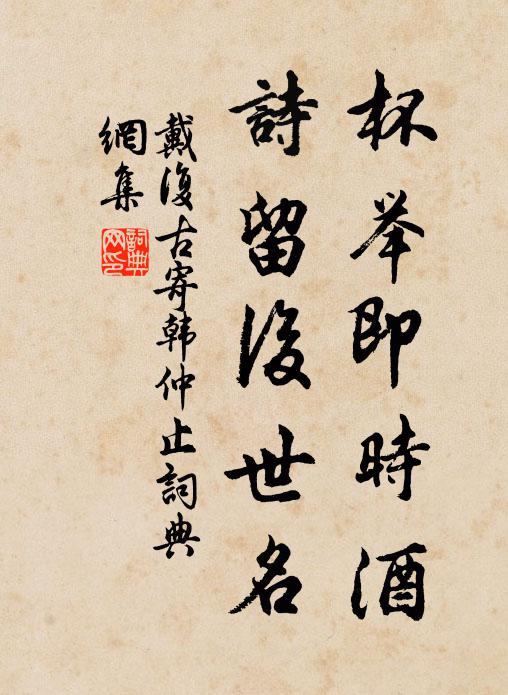 杯举即時酒
詩留後世名
戴復古寄韩仲止詞典
網集
詞典网印